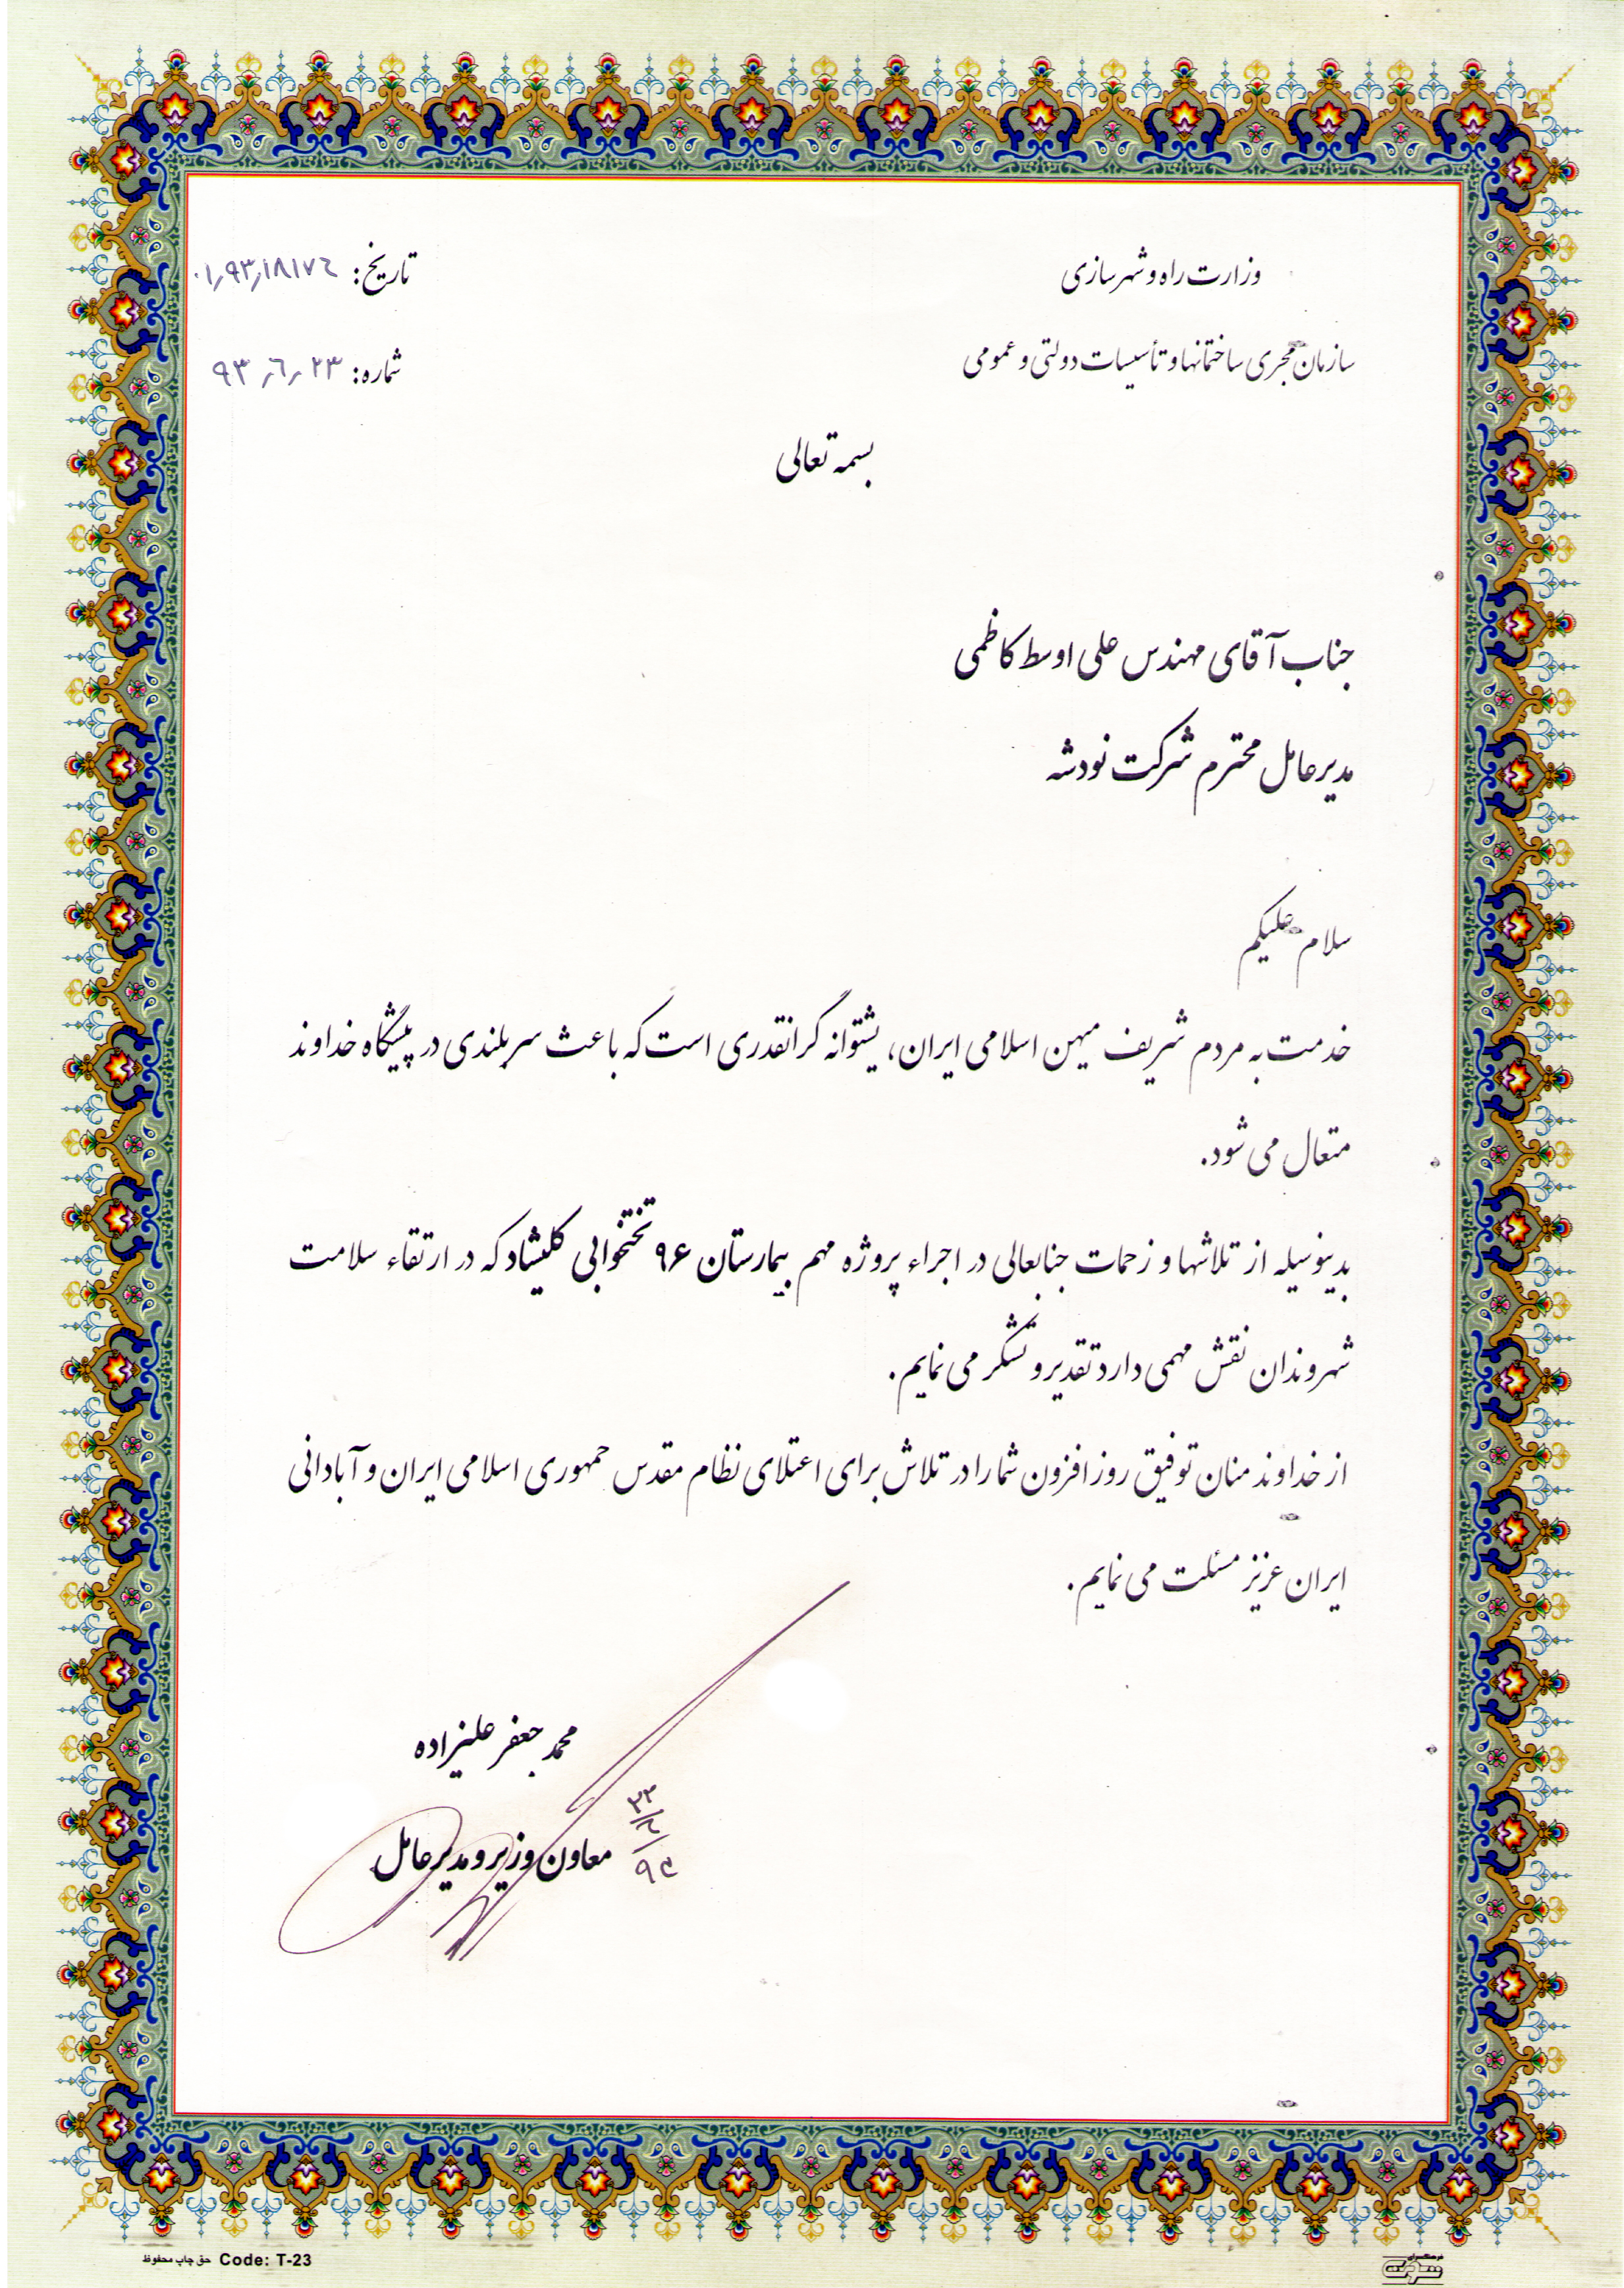 وزارت راه و شهرسازی
تاریخ: ۰۱٫۹۳٫۱۸۱۷٦
سازمان مجری ساختمانها و تأسیسات دولتی و عمومی
شماره: ۹۳٫٦٫۲۳
بسمه تعالی
جناب آقای مهندس علی اوسط کاظمی
مدیرعامل محترم شرکت نودشه
سلام علیکم
خدمت به مردم شریف میهن اسلامی ایران، پشتوانه گرانقدری است که باعث سربلندی در پیشگاه خداوند
متعال می شود.
بدینوسیله از تلاشها و زحمات جنابعالی در اجراء پروژه مهم بیمارستان ۹۶ تختخوابی کلیشاد که در ارتقاء سلامت
شهروندان نقش مهمی دارد تقدیر و تشکر می نمایم.
از خداوند منان توفیق روزافزون شما را در تلاش برای اعتلای نظام مقدس جمهوری اسلامی ایران و آبادانی
ایران عزیز مسئلت می نمایم.
محمد جعفر علیزاده
معاون وزیر و مدیرعامل
حق چاپ محفوظ Code: T-23